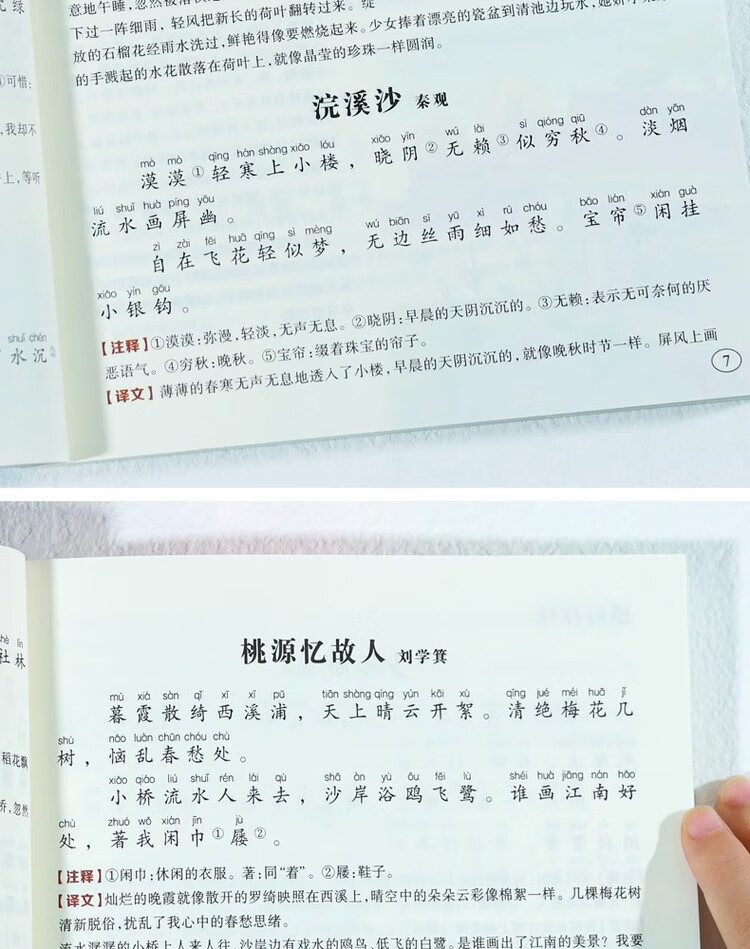 意地午睡，忽然被
下过一阵细雨，轻风把新长的荷叶翻转过来。绽
放的石榴花经雨水洗过，鲜艳得像要燃烧起来。少女捧着漂亮的瓷盆到清池边玩水，她娇小
的手溅起的水花散落在荷叶上，就像晶莹的珍珠一样圆润。
浣溪沙 秦观
mò mò qīng hán shàng xiǎo lóu xiǎo yīn wú lài sì qióng qiū dàn yān
漠漠①轻寒上小楼，晓阴②无赖③似穷秋④。淡烟
liú shuǐ huà píng yōu
流水画屏幽。
zì zài fēi huā qīng sì mèng wú biān sī yǔ xì rú chóu bǎo lián xián guà
自在飞花轻似梦，无边丝雨细如愁。宝帘⑤闲挂
xiǎo yín gōu
小银钩。
【注释】①漠漠：弥漫，轻淡，无声无息。②晓阴：早晨的天阴沉沉的。③无赖：表示无可奈何的厌
恶语气。④穷秋：晚秋。⑤宝帘：缀着珠宝的帘子。
【译文】薄薄的春寒无声无息地透入了小楼，早晨的天阴沉沉的，就像晚秋时节一样。屏风上画
7
可惜：
，我却不
上，等听
shuǐ chén
水沉
桃源忆故人 刘学箕
mù xiá sàn qǐ xī xī pǔ tiān shàng qíng yún kāi xù qīng jué méi huā jǐ
暮霞散绮西溪浦，天上晴云开絮。清绝梅花几
shù nǎo luàn chūn chóu chù
树，恼乱春愁处。
xiǎo qiáo liú shuǐ rén lái qù shā àn yù ōu fēi lù shéi huà jiāng nán hǎo
小桥流水人来去，沙岸浴鸥飞鹭。谁画江南好
chù zhuó wǒ xián jīn jù
处，著我闲巾①屦②。
【注释】①闲巾：休闲的衣服。著：同“着”。②屦：鞋子。
【译文】灿烂的晚霞就像散开的罗绮映照在西溪上，晴空中的朵朵云彩像棉絮一样。几棵梅花树
清新脱俗，扰乱了我心中的春愁思绪。
流水潺潺的小桥上人来人往，沙岸边有戏水的鸥鸟、低飞的白鹭。是谁画出了江南的美景？我要
shè lín
社林
稻花飘
乔，忽然